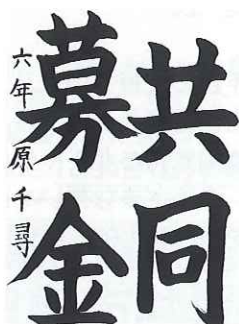 共同
募金
六年 原千尋